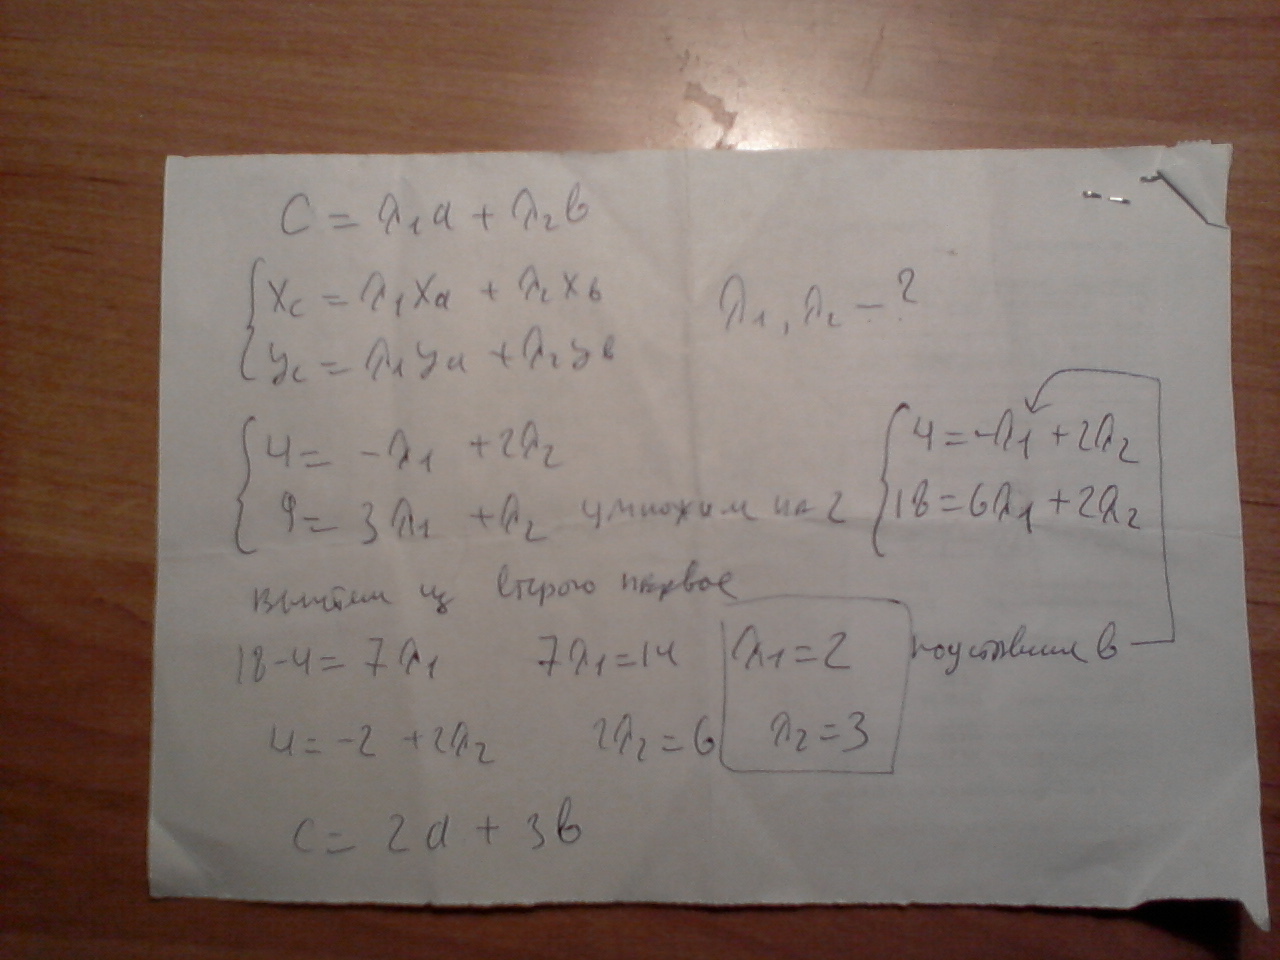 C = λ₁a + λ₂b
{ Xc = λ₁Xa + λ₂Xb
yc = λ₁ya + λ₂yb
λ₁, λ₂ - ?
{ 4 = -λ₁ + 2λ₂
9 = 3λ₁ + λ₂ умножим на 2
{ 4 = -λ₁ + 2λ₂
18 = 6λ₁ + 2λ₂
вычтем из второго первое
18-4 = 7λ₁ 7λ₁ = 14 λ₁ = 2 подставим в
4 = -2 + 2λ₂ 2λ₂ = 6 λ₂ = 3
C = 2a + 3b